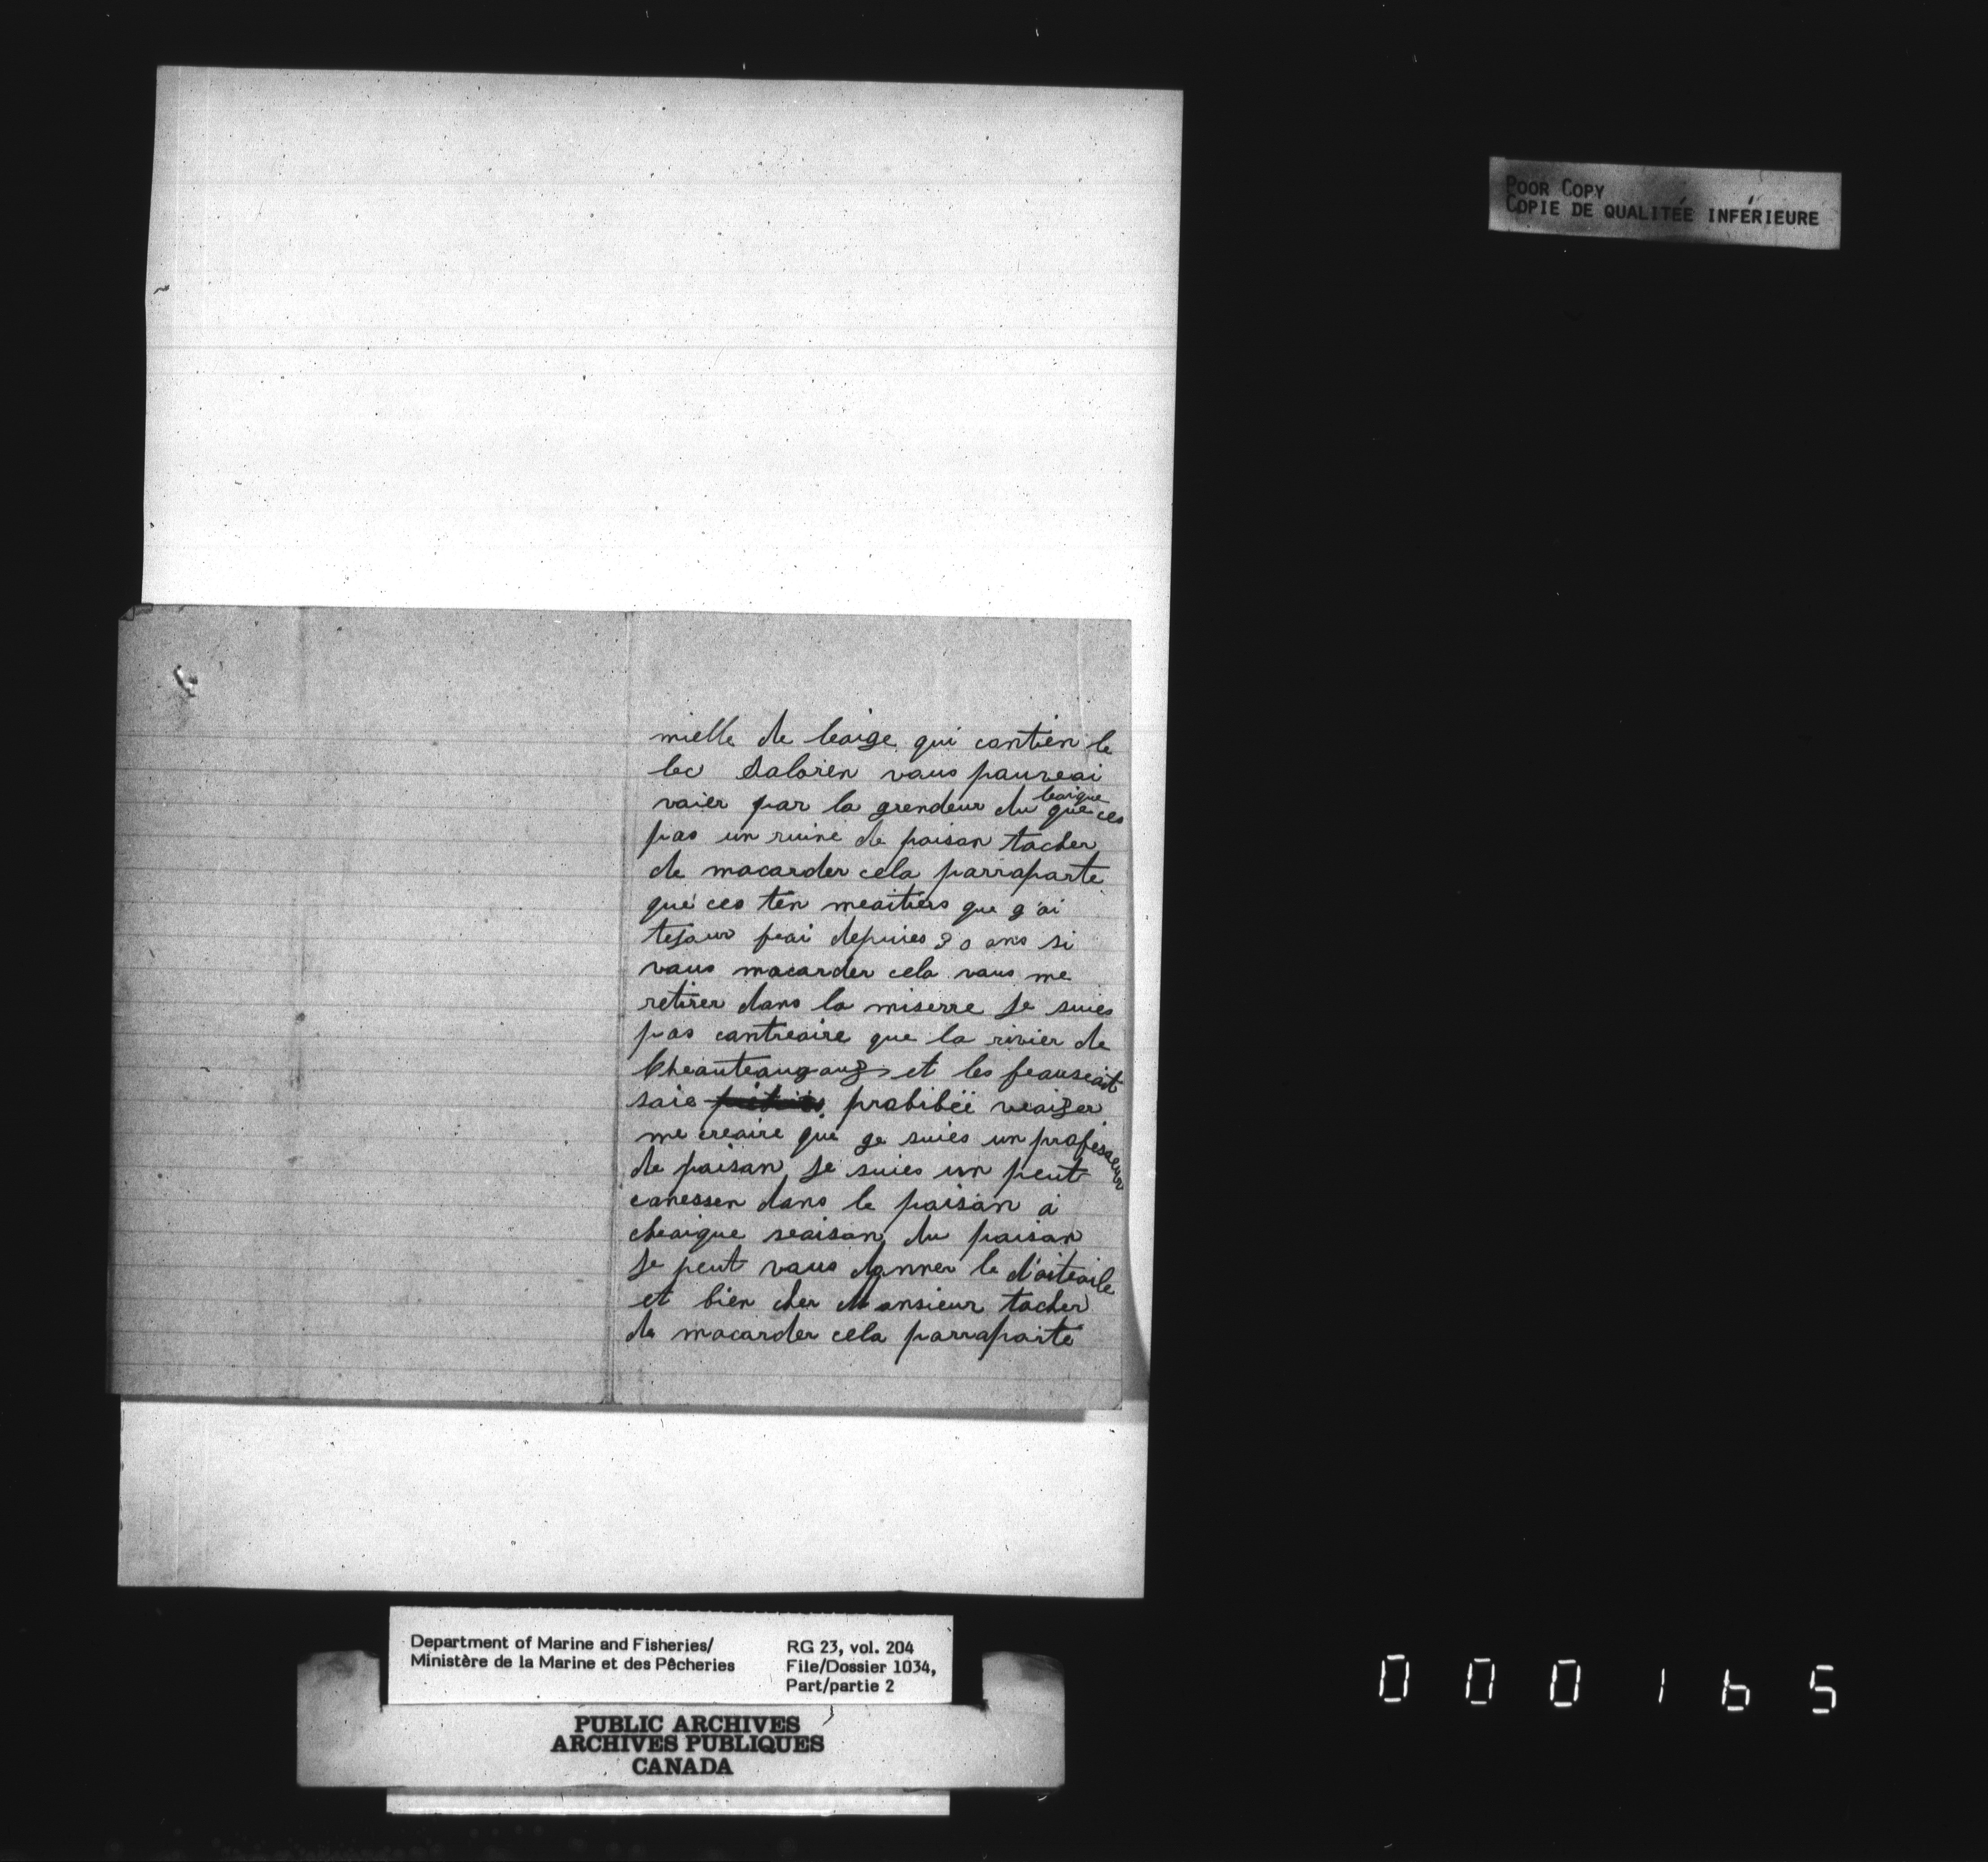 POOR COPY
COPIE DE QUALITÉE INFÉRIEURE
mielle de leaige qui contien le
lec Saloren vous pauveai
vaier par la grendeur du leaigue que ces
pas un ruine de poisan tacher
de macarder cela parraparte
que ces ten meaitiers que g'ai
tejour feai depuies 30 ans si
vous macarder cela vous me
retirer dans la miserre Je suies
pas cantreaire que la rivier de
Cheauteaugauz et les feauseait
saie probibéé veaizer
me creaire que ge suies un professeur
de paisan Je suies un peut
canessen dans le paisan a
cheaique seaisan du paisan
Je peut vaus danner le d'aiteaile
et bien cher Mansieur tacher
de macarder cela parraparte
Department of Marine and Fisheries/
Ministère de la Marine et des Pêcheries
RG 23, vol. 204
File/Dossier 1034,
Part/partie 2
PUBLIC ARCHIVES
ARCHIVES PUBLIQUES
CANADA
000165